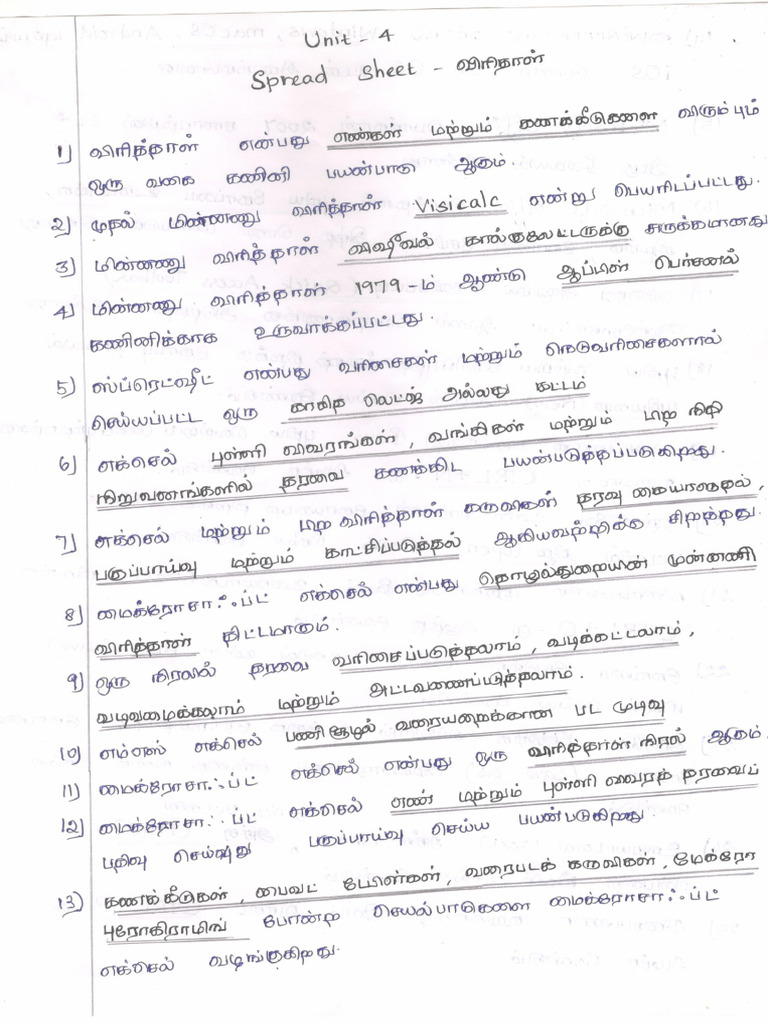 Unit - 4
Spread Sheet - விரிதாள்
1) விரித்தாள் என்பது எண்கள் மற்றும் கணக்கீடுகளை விரும்பும்
ஒரு வகை கணினி பயன்பாடு ஆகும்.
2) முதல் மின்னணு விரித்தாள் Visicalc என்று பெயரிடப்பட்டது.
3) மின்னணு விரித்தாள் விஷீவல் கால்குலேட்டருக்கு சுருக்கமானது
4) மின்னணு விரித்தாள் 1979-ம் ஆண்டு ஆப்பிள் பெர்சனல்
கணினிக்காக உருவாக்கப்பட்டது.
5) ஸ்ப்ரெட்ஷீட் என்பது வரிசைகள் மற்றும் நெடுவரிசைகளால்
செய்யப்பட்ட ஒரு காகித லெட்ஜர் அல்லது கட்டம்
6) எக்செல் புள்ளி விவரங்கள், வங்கிகள் மற்றும் பிற நிதி
நிறுவனங்களில் தரவை கணக்கிட பயன்படுத்தப்படுகிறது.
7) எக்செல் மற்றும் பிற விரித்தாள் கருவிகள் தரவு கையாளுதல்,
பகுப்பாய்வு மற்றும் காட்சிப்படுத்தல் ஆகியவற்றிக்கு சிறந்தது.
8) மைக்ரோசாஃப்ட் எக்செல் என்பது தொழில்துறையின் முன்னணி
விரித்தாள் திட்டமாகும்.
9) ஒரு நிரலில் தரவை வரிசைப்படுத்தலாம், வடிகட்டலாம்,
வடிவமைக்கலாம் மற்றும் அட்டவணைப்படுத்தலாம்.
10) எம்எஸ் எக்செல் பணிசூழல் வரையறைக்கான பட முடிவு
11) மைக்ரோசாஃப்ட் எக்செல் என்பது ஒரு விரித்தாள் நிரல் ஆகும்.
12) மைக்ரோசாஃப்ட் எக்செல் எண் மற்றும் புள்ளி விவரத் தரவைப்
பதிவு செய்வது பகுப்பாய்வு செய்ய பயன்படுகிறது.
13) கணக்கீடுகள், பைவட் டேபிள்கள், வரைபடக் கருவிகள், மேக்ரோ
புரோகிராமிங் போன்ற செயல்பாடுகளை மைக்ரோசாஃப்ட்
எக்செல் வழங்குகிறது.